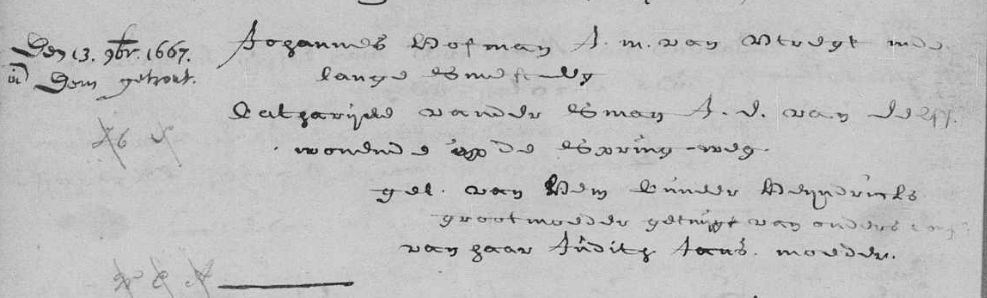 Den 13. 9br. 1667.
in Dom getrout.
Johannes Hofman J. m. van Utregt inde
lange Smesteeg
Catharijne vander Sman J. d. van Delff.
wonende op de Spring-weg.
get. van Hem Hendricks
grootmoeder getuijgt van onders
van haar Judith Jans. moeder.